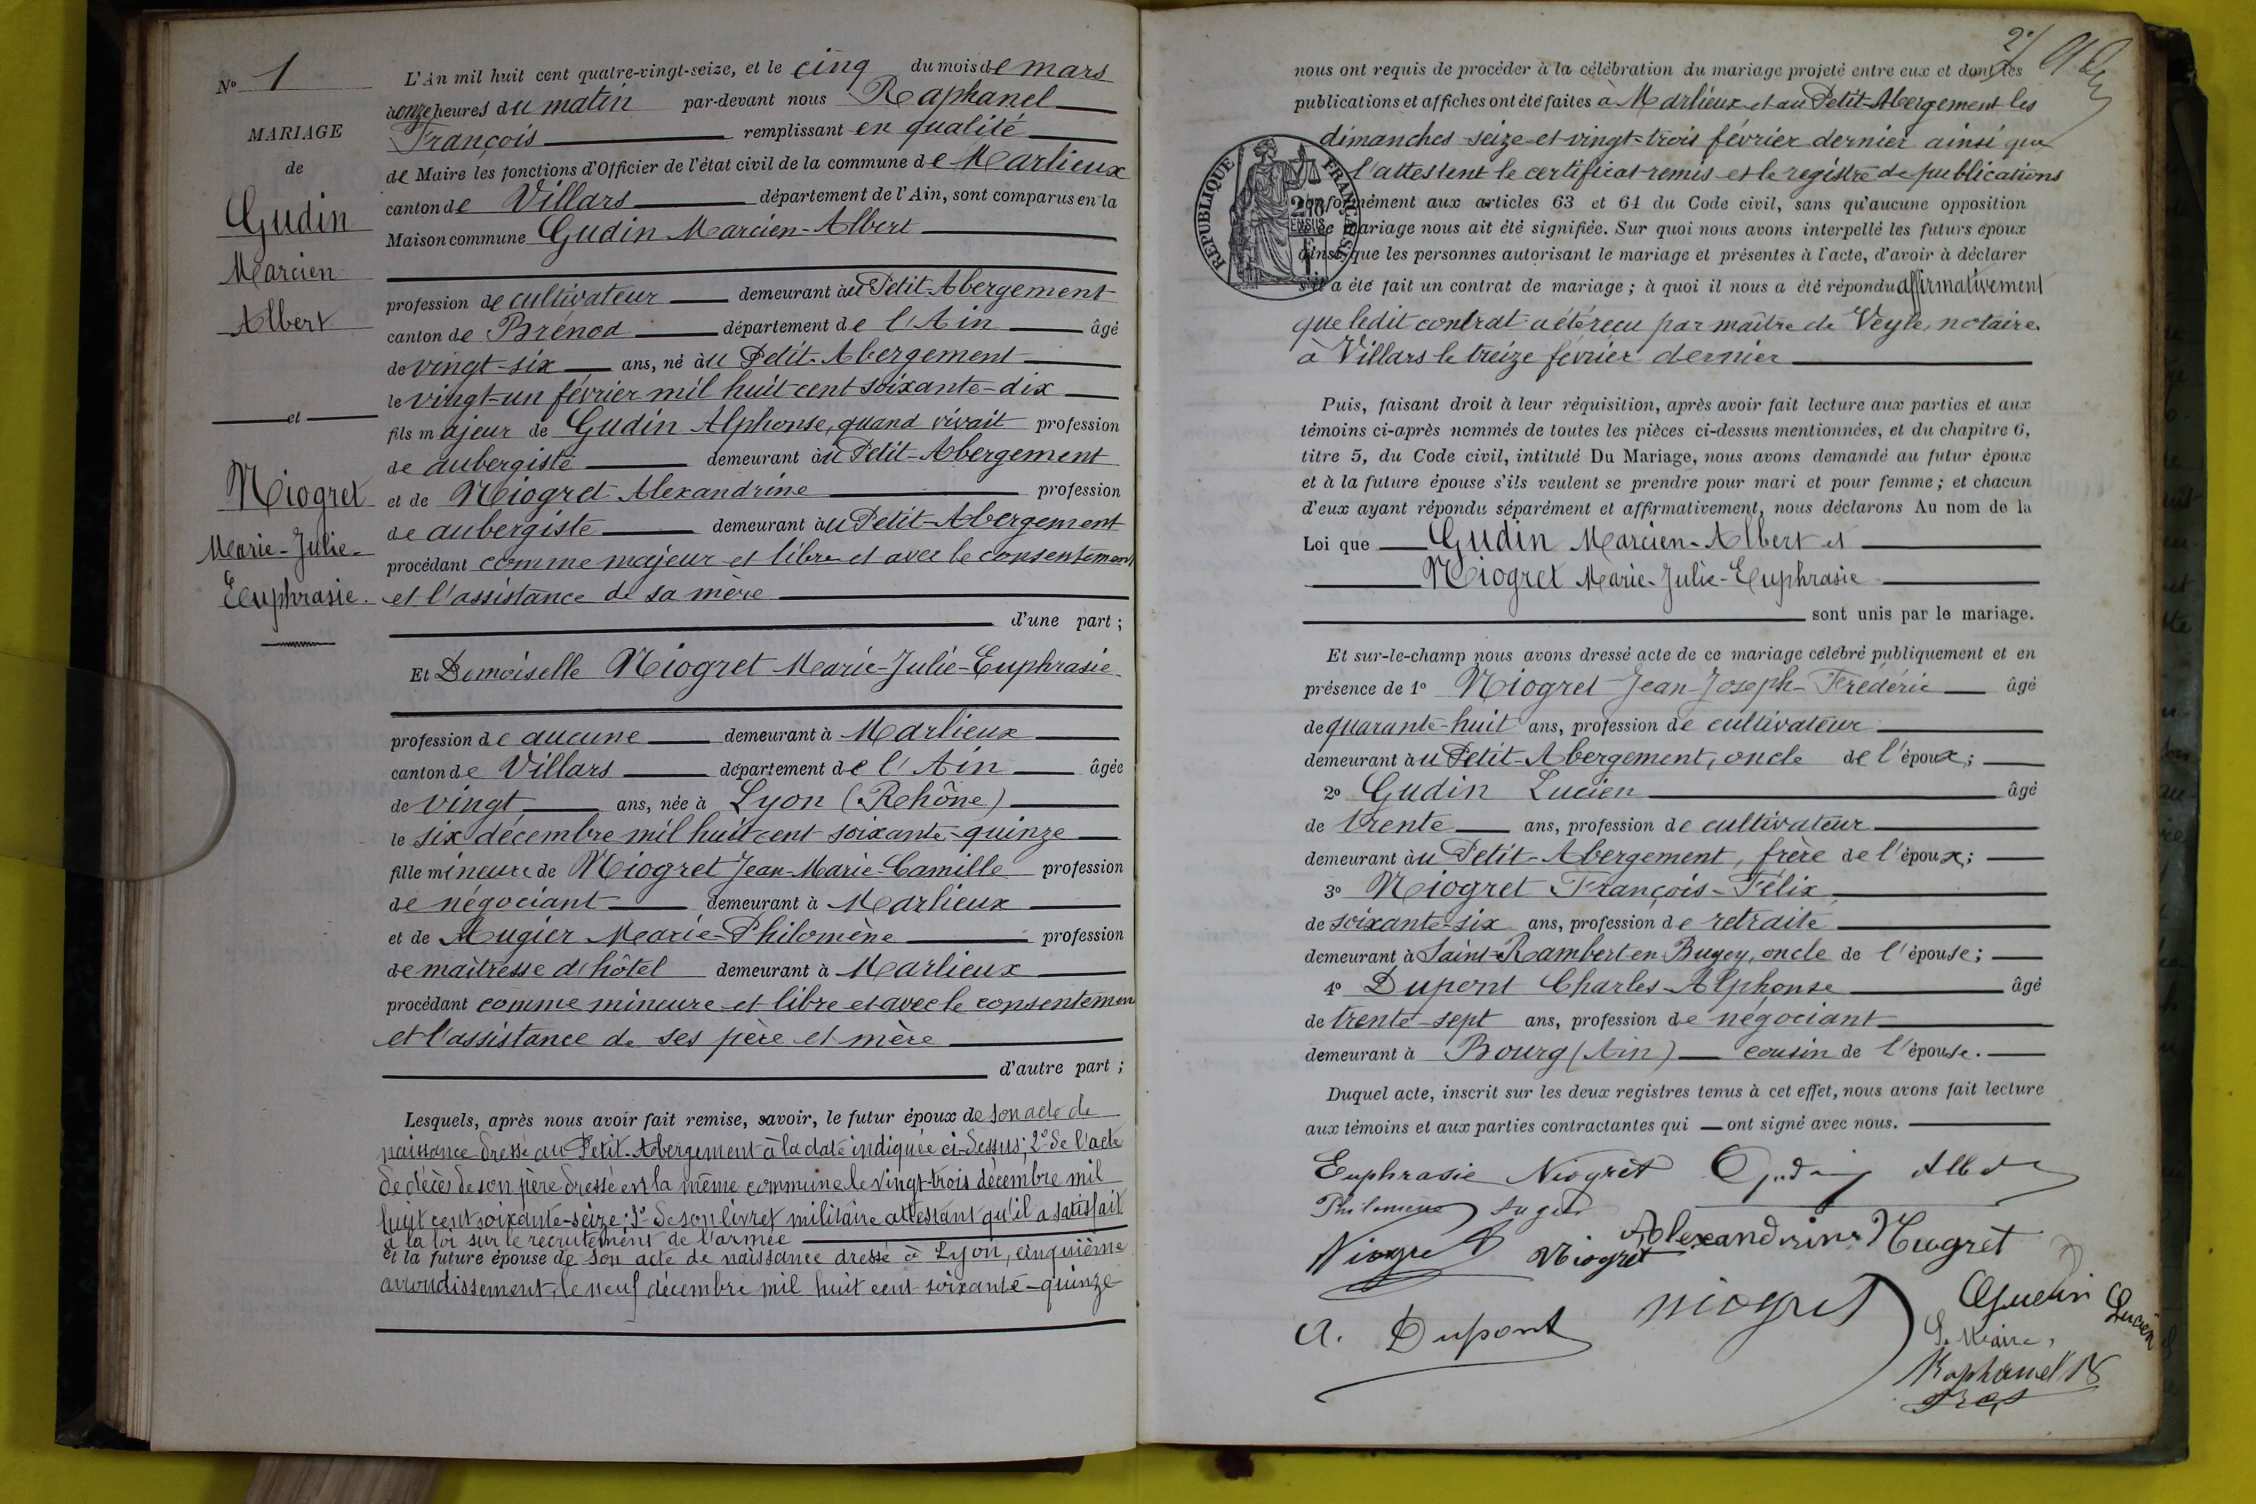 Nº 1
MARIAGE
de
Gudin
Marcien
Albert
et
Niogret
Marie-Julie-
Euphrasie.
L'An mil huit cent quatre-vingt-seize, et le cinq du mois de mars
à onze heures du matin par-devant nous Raphanel
François remplissant en qualité
de Maire les fonctions d'Officier de l'état civil de la commune de Marlieux
canton de Villars département de l'Ain, sont comparus en la
Maison commune Gudin Marcien-Albert
profession de cultivateur demeurant au Petit-Abergement
canton de Brénod département de l'Ain âgé
de vingt-six ans, né au Petit-Abergement
le vingt-un février mil huit cent soixante-dix
fils majeur de Gudin Alphonse, quand vivait profession
de aubergiste demeurant au Petit-Abergement
et de Niogret Alexandrine profession
de aubergiste demeurant au Petit-Abergement
procédant comme majeur et libre et avec le consentement
et l'assistance de sa mère
d'une part ;
Et Demoiselle Niogret Marie-Julie-Euphrasie
profession de aucune demeurant à Marlieux
canton de Villars département de l'Ain âgée
de vingt ans, née à Lyon (Rehône)
le six décembre mil huit cent soixante-quinze
fille mineure de Niogret Jean-Marie-Camille profession
de négociant demeurant à Marlieux
et de Augier Marie-Philomène profession
de maîtresse d'hôtel demeurant à Marlieux
procédant comme mineure et libre et avec le consentemen
et l'assistance de ses père et mère
d'autre part ;
Lesquels, après nous avoir fait remise, savoir, le futur époux de son acte de
naissance dressé au Petit-Abergement à la date indiquée ci-dessus; 2º de l'acte
de décès de son père dressé en la même commune le vingt-trois décembre mil
huit cent soixante-seize; 3º de son livret militaire attestant qu'il a satisfait
à la loi sur le recrutement de l'armée
et la future épouse de son acte de naissance dressé à Lyon, cinquième
arrondissement, le neuf décembre mil huit cent soixante-quinze
2/
nous ont requis de procéder à la célébration du mariage projeté entre eux et dont les
publications et affiches ont été faites à Marlieux et au Petit-Abergement les
dimanches seize et vingt-trois février dernier ainsi que
l'attestent le certificat remis et le registre de publications
conformément aux articles 63 et 64 du Code civil, sans qu'aucune opposition
à ce mariage nous ait été signifiée. Sur quoi nous avons interpellé les futurs époux
ainsi que les personnes autorisant le mariage et présentes à l'acte, d'avoir à déclarer
s'il a été fait un contrat de mariage ; à quoi il nous a été répondu affirmativement
que ledit contrat a été reçu par maître de Veyle, notaire
à Villars le treize février dernier
RÉPUBLIQUE FRANÇAISE
Puis, faisant droit à leur réquisition, après avoir fait lecture aux parties et aux
témoins ci-après nommés de toutes les pièces ci-dessus mentionnées, et du chapitre 6,
titre 5, du Code civil, intitulé Du Mariage, nous avons demandé au futur époux
et à la future épouse s'ils veulent se prendre pour mari et pour femme ; et chacun
d'eux ayant répondu séparément et affirmativement, nous déclarons Au nom de la
Loi que Gudin Marcien-Albert et
Niogret Marie-Julie-Euphrasie
sont unis par le mariage.
Et sur-le-champ nous avons dressé acte de ce mariage célébré publiquement et en
présence de 1º Niogret Jean-Joseph-Frédéric âgé
de quarante-huit ans, profession de cultivateur
demeurant au Petit-Abergement, oncle de l'époux ;
2º Gudin Lucien âgé
de trente ans, profession de cultivateur
demeurant au Petit-Abergement, frère de l'époux ;
3º Niogret François-Félix
de soixante-six ans, profession de retraite
demeurant à Saint-Rambert en Bugey, oncle de l'épouse ;
4º Dupont Charles-Alphonse âgé
de trente-sept ans, profession de négociant
demeurant à Bourg (Ain) cousin de l'épouse.
Duquel acte, inscrit sur les deux registres tenus à cet effet, nous avons fait lecture
aux témoins et aux parties contractantes qui ont signé avec nous.
Euphrasie Niogret Gudin Albert
Philomène Augier
Alexandrine Niogret
Niogret Niogret
Niogret
Gudin Lucien
A. Dupont
Le Maire,
Raphanel